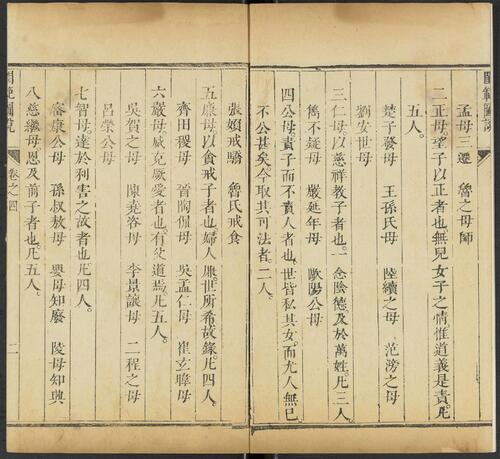 孟母三遷　魯之母師
二正母望子以正者也無兒女子之情惟道義是責凡
五人。
楚子發母　王孫氏母　陸續之母　范滂之母
劉安世母
三仁母以慈祥教子者也。一念陰德及於萬姓。凡三人
雋不疑母　嚴延年母　歐陽公母
四公母責子而不責人者也。世皆私其女。而尤人無已
不公甚矣。今取其可法者。二人。
張媍戒驕　魯氏戒食
五廉母以貪戒子者也婦人廉世所希故錄凡四人。
齊田稷母　晉陶侃母　吳孟仁母　崔玄暐母
六嚴母威克厥愛者也有父道焉凡五人。
吳賀之母　陳堯咨母　李景讓母　二程之母
呂榮公母
七智母達於利害之故者也凡四人。
密康公母　孫叔敖母　嬰母知廢　陵母知興
八慈繼母恩及前子者也凡五人。
卷之四
二